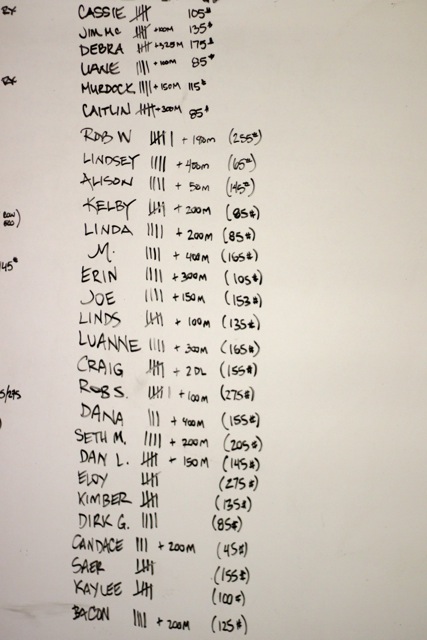 RX CASSIE 𝍸 105#
JIM MC 𝍸 +100M 135#
DEBRA 𝍸 +325M 175#
LIANE |||| +100M 85#
RX MURDOCK |||| +150M 115#
CAITLIN 𝍸 +300M 85#
ROB W 𝍸| + 190M (255#)
LINDSEY |||| + 400M (65#)
ALISON |||| + 50M (145#)
KELBY 𝍸 +200M (85#)
LINDA |||| + 200M (85#)
M. |||| + 400M (165#)
145# ERIN |||| +300M (105#)
JOE |||| +150M (153#)
LINDS 𝍸 + 100M (135#)
LUANNE |||| + 300M (165#)
CRAIG 𝍸 + 2DL (155#)
5/275 ROB S. 𝍸| +100M (275#)
DANA ||| + 400M (155#)
SETH M. |||| + 200M (205#)
DAN L. 𝍸 + 150M (145#)
ELOY 𝍸 (275#)
KIMBER 𝍸 (135#)
DIRK G. |||| (85#)
CANDACE ||| + 200M (45#)
SAER 𝍸 (155#)
KAYLEE 𝍸 (100#)
BACON |||| + 200M (125#)